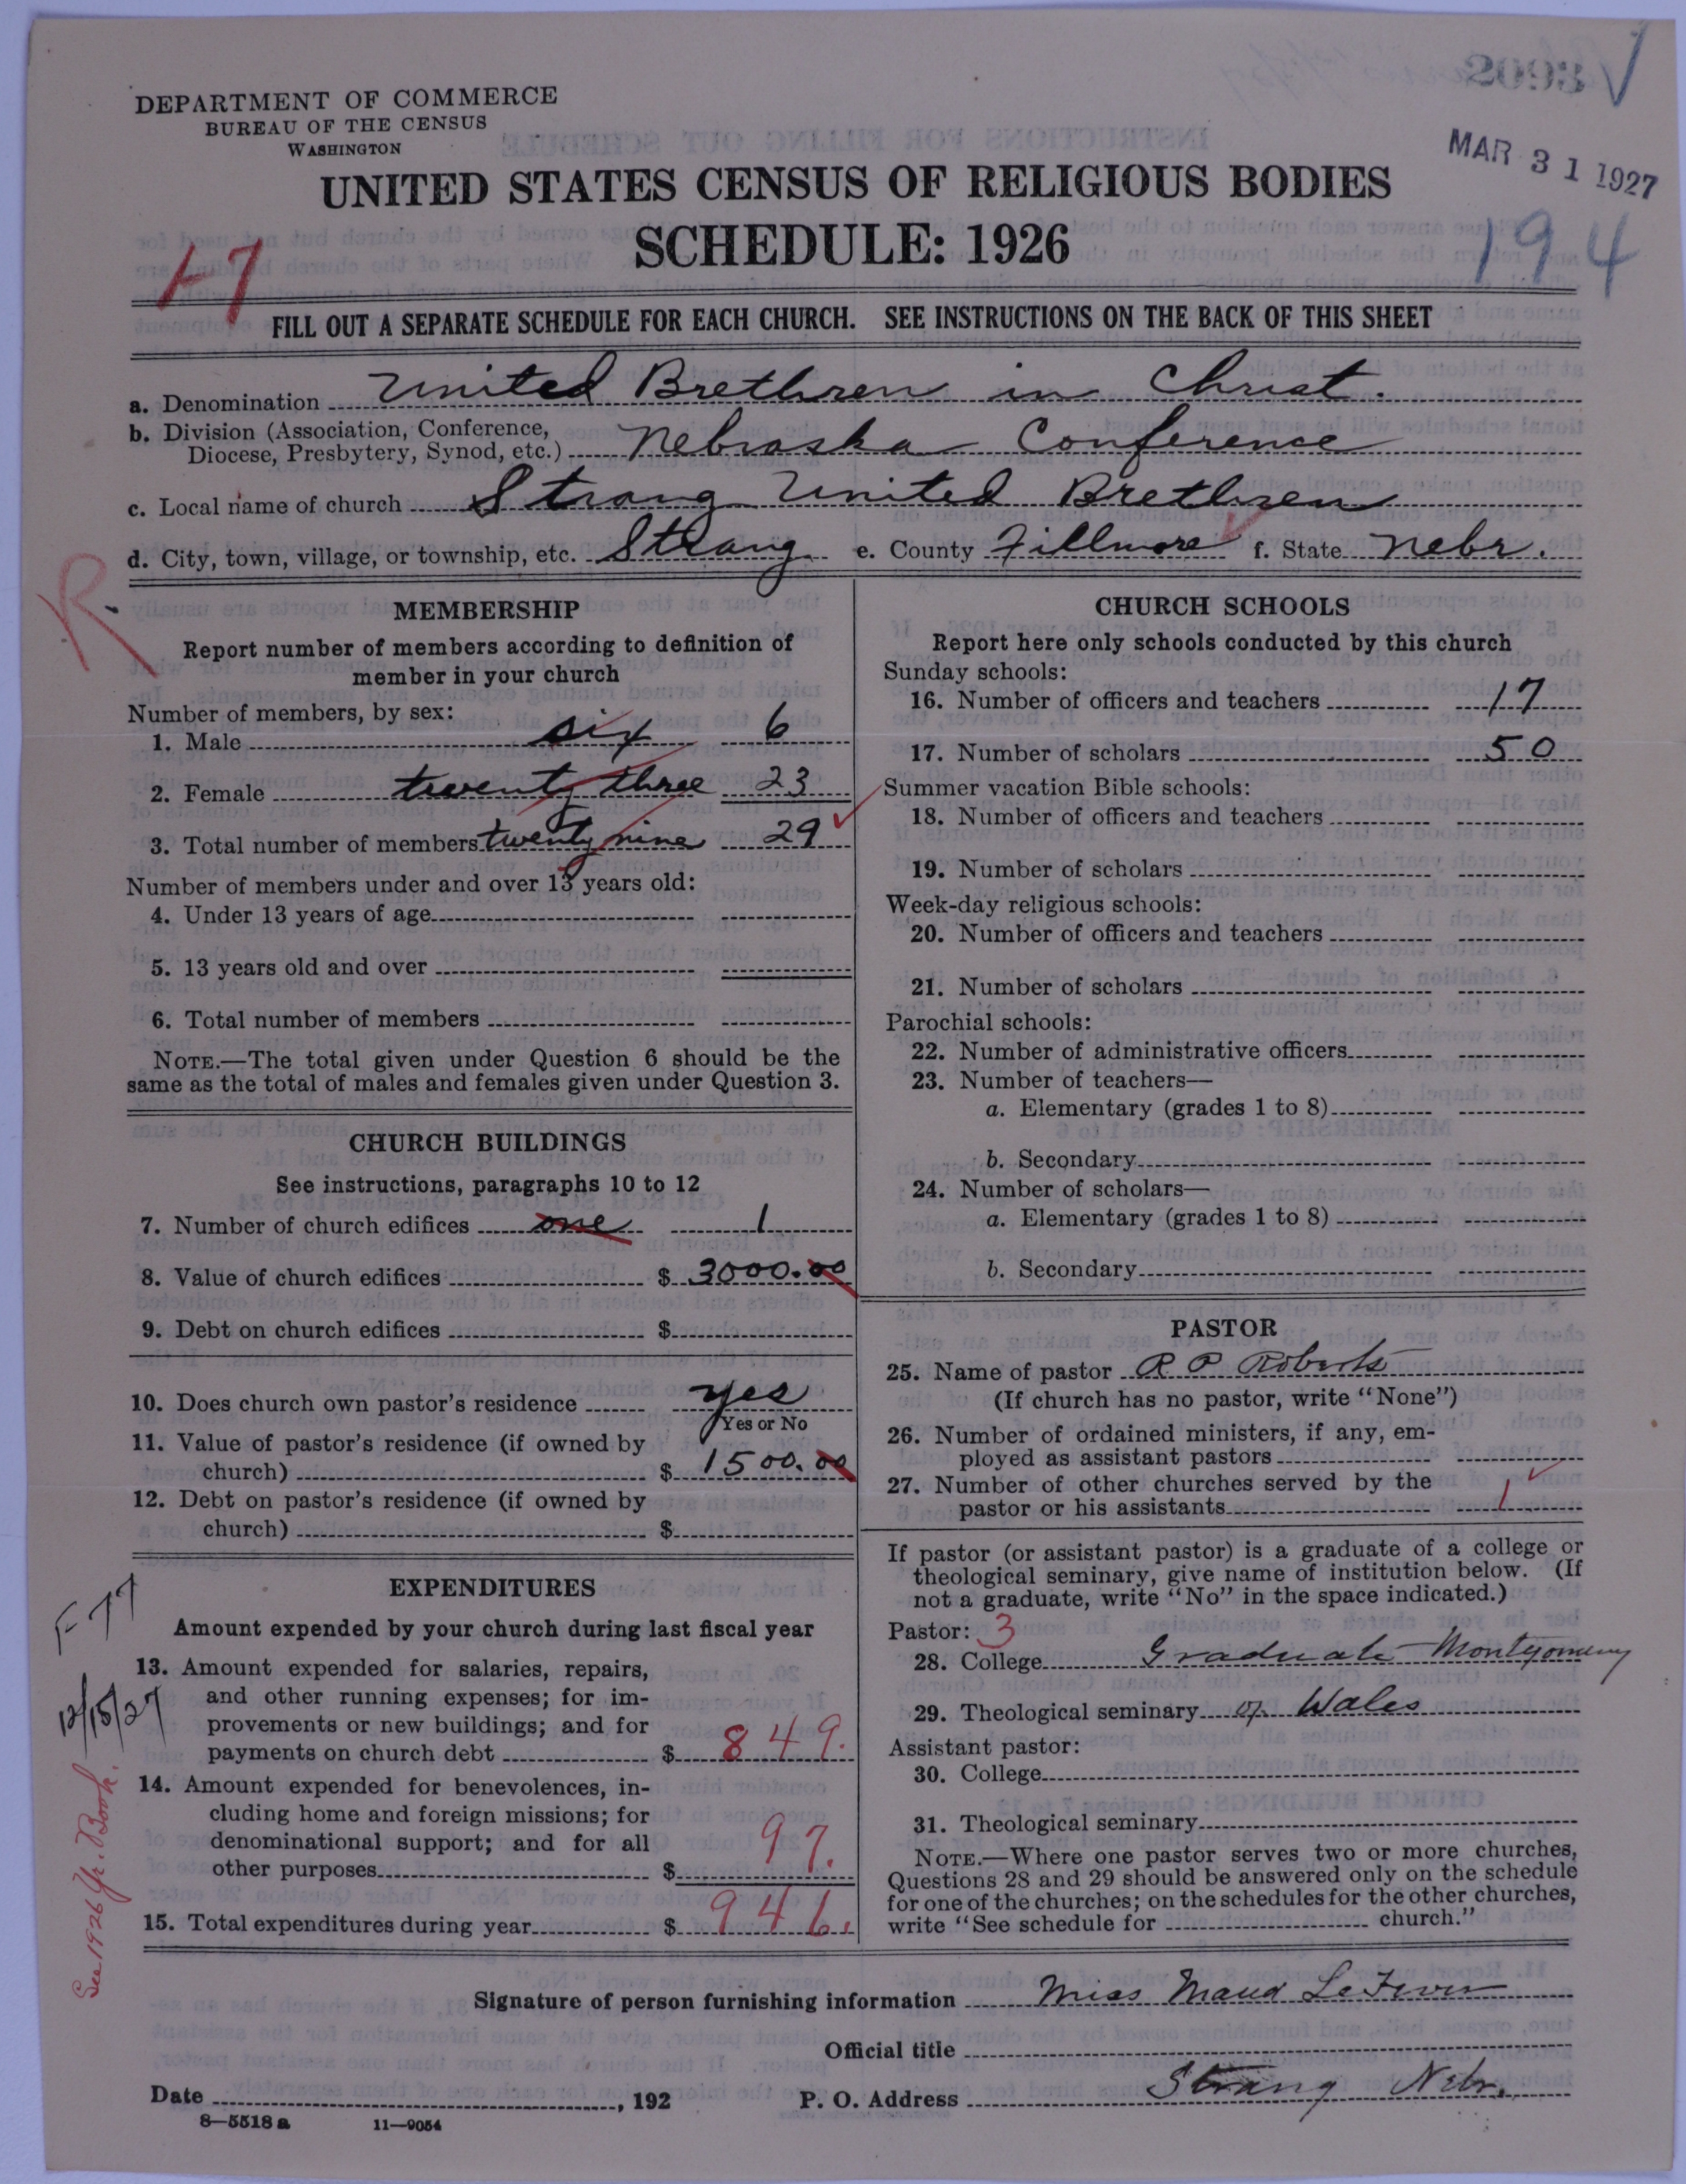 DEPARTMENT OF COMMERCE
BUREAU OF THE CENSUS
WASHINGTON
MAR 31 1927
UNITED STATES CENSUS OF RELIGIOUS BODIES
SCHEDULE: 1926
194
17
FILL OUT A SEPARATE SCHEDULE FOR EACH CHURCH. SEE INSTRUCTIONS ON THE BACK OF THIS SHEET
a. Denomination United Brethren in Christ.
b. Division (Association, Conference,
Diocese, Presbytery, Synod, etc.) Nebraska Conference
c. Local name of church Strang United Brethren
d. City, town, village, or township, etc. Strang e. County Fillmore f. State Nebr.
R.
MEMBERSHIP
Report number of members according to definition of
member in your church
Number of members, by sex:
1. Male six 6
2. Female twenty three 23
3. Total number of members twenty nine 29
Number of members under and over 13 years old:
4. Under 13 years of age
5. 13 years old and over
6. Total number of members
NOTE.—The total given under Question 6 should be the
same as the total of males and females given under Question 3.
CHURCH BUILDINGS
See instructions, paragraphs 10 to 12
7. Number of church edifices one 1
8. Value of church edifices $ 3000.00
9. Debt on church edifices $
10. Does church own pastor's residence yes
Yes or No
11. Value of pastor's residence (if owned by
church) $ 1500.00
12. Debt on pastor's residence (if owned by
church) $
F-77
12/15/27
See 1926 Yr. Book.
EXPENDITURES
Amount expended by your church during last fiscal year
13. Amount expended for salaries, repairs,
and other running expenses; for im-
provements or new buildings; and for
payments on church debt $ 849.
14. Amount expended for benevolences, in-
cluding home and foreign missions; for
denominational support; and for all
other purposes $ 97.
15. Total expenditures during year $ 946.
CHURCH SCHOOLS
Report here only schools conducted by this church
Sunday schools:
16. Number of officers and teachers 17
17. Number of scholars 50
Summer vacation Bible schools:
18. Number of officers and teachers
19. Number of scholars
Week-day religious schools:
20. Number of officers and teachers
21. Number of scholars
Parochial schools:
22. Number of administrative officers
23. Number of teachers—
a. Elementary (grades 1 to 8)
b. Secondary
24. Number of scholars—
a. Elementary (grades 1 to 8)
b. Secondary
PASTOR
25. Name of pastor R P Roberts
(If church has no pastor, write "None")
26. Number of ordained ministers, if any, em-
ployed as assistant pastors
27. Number of other churches served by the
pastor or his assistants 1
If pastor (or assistant pastor) is a graduate of a college or
theological seminary, give name of institution below. (If
not a graduate, write "No" in the space indicated.)
Pastor: 3
28. College Graduate Montgomery
29. Theological seminary of Wales
Assistant pastor:
30. College
31. Theological seminary
NOTE.—Where one pastor serves two or more churches,
Questions 28 and 29 should be answered only on the schedule
for one of the churches; on the schedules for the other churches,
write "See schedule for church."
Signature of person furnishing information Miss Maud LeFever
Official title
Date , 192 P. O. Address Strang Nebr.
8—5518 a 11—9054